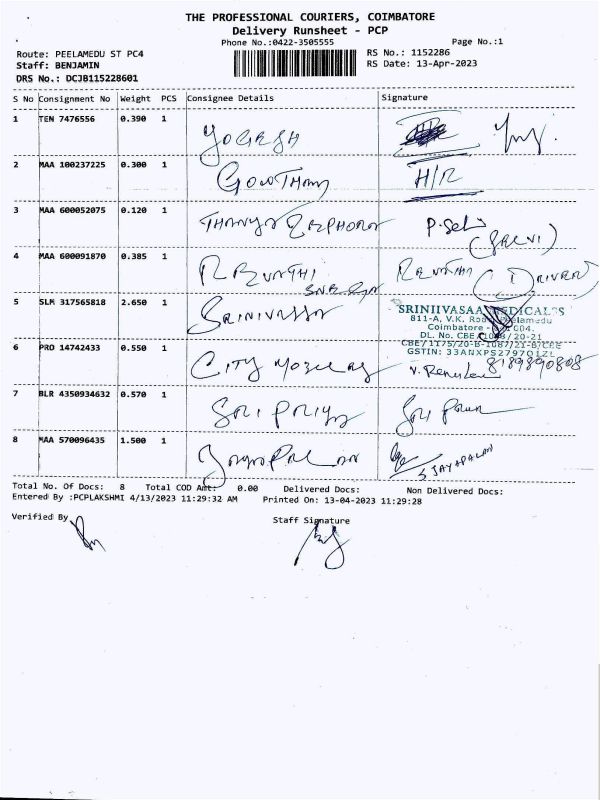 THE PROFESSIONAL COURIERS, COIMBATORE
Delivery Runsheet - PCP
Phone No.:0422-3505555
Page No.:1
Route: PEELAMEDU ST PC4
RS No.: 1152286
Staff: BENJAMIN
RS Date: 13-Apr-2023
DRS No.: DCJB115228601
S No Consignment No Weight PCS Consignee Details Signature
1 TEN 7476556 0.390 1
YOGESH
2 MAA 100237225 0.300 1
GOWTHAM H/R
3 MAA 600052075 0.120 1
P. Selvi
(SELVI)
4 MAA 600091870 0.385 1
REVATHI (DRIVER)
5 SLM 317565818 2.650 1
SRINIVASSA
SRINIIVASAA MEDICALSS
811-A, V.K. Road, Peelamedu
Coimbatore - 004.
DL. No. CBE 20-21
GSTIN: 33ANXPS2797Q1ZL
6 PRO 14742433 0.550 1
CITY V. Renuka 8189890808
7 BLR 4350934632 0.570 1
SRI PRIYA Sri Priya
8 MAA 570096435 1.500 1
JAYAPALAN S JAYAPALAN
Total No. Of Docs: 8 Total COD Amt: 0.00 Delivered Docs: Non Delivered Docs:
Entered By :PCPLAKSHMI 4/13/2023 11:29:32 AM Printed On: 13-04-2023 11:29:28
Verified By
Staff Signature